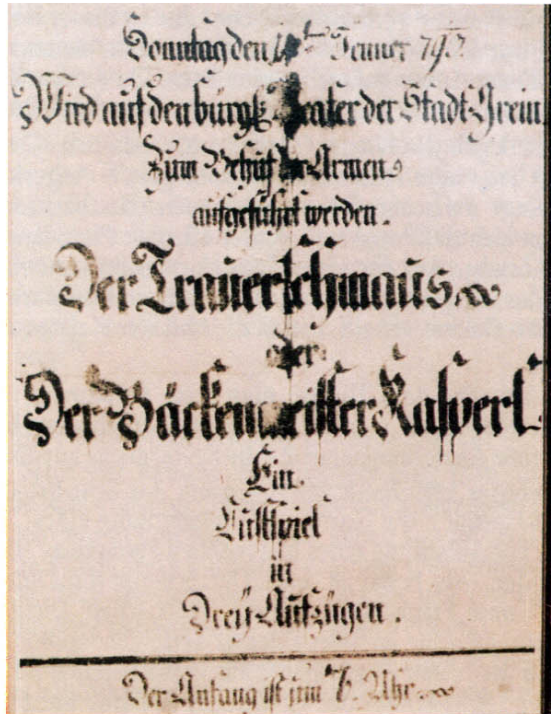 Sonntag den Jenner 793
Wird auf den bürgl. Theater der Stadt Grein
Zum Behuf der Armen
aufgeführt werden.
Der Trauerschmaus
oder
Der Bäckenmeister Kasperl
Ein
Lustspiel
in
Drey Aufzügen.
Der Anfang ist um Uhr